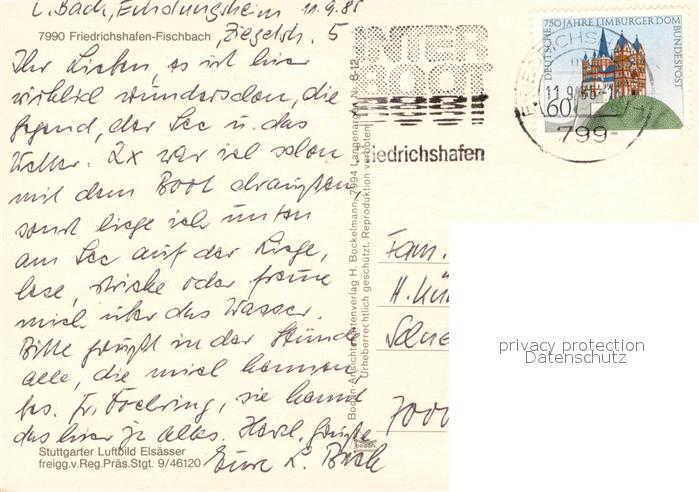 L. Bach, Erholungsheim 11.9.85
7990 Friedrichshafen-Fischbach
Ziegelstr. 5
Ihr Lieben, es ist hier
wirklich wunderschön, die
Gegend, der See u. das
Wetter. 2x war ich schon
mit dem Boot draußen,
sonst liege ich unten
am See auf der Liege,
lese, stricke oder freue
mich über das Wasser.
Bitte grüßt in der Stunde
alle, die mich kennen,
bes. Fr. , sie kennt
das hier ja alles. Herzl. Grüße
Eure L. Bach
Stuttgarter Luftbild Elsässer
freigg.v.Reg.Präs.Stgt. 9/46120
Bodan-Ansichtskartenverlag H. Bockelmann, 7994 Langenargen Nr. 8-12
Urheberrechtlich geschützt. Reproduktion verboten
INTER
BOOT
Friedrichshafen
750 JAHRE LIMBURGER DOM
DEUTSCHE BUNDESPOST
60
1985
FRIEDRICHS
11.9.85
799
Fam.
H.
7000
privacy protection
Datenschutz